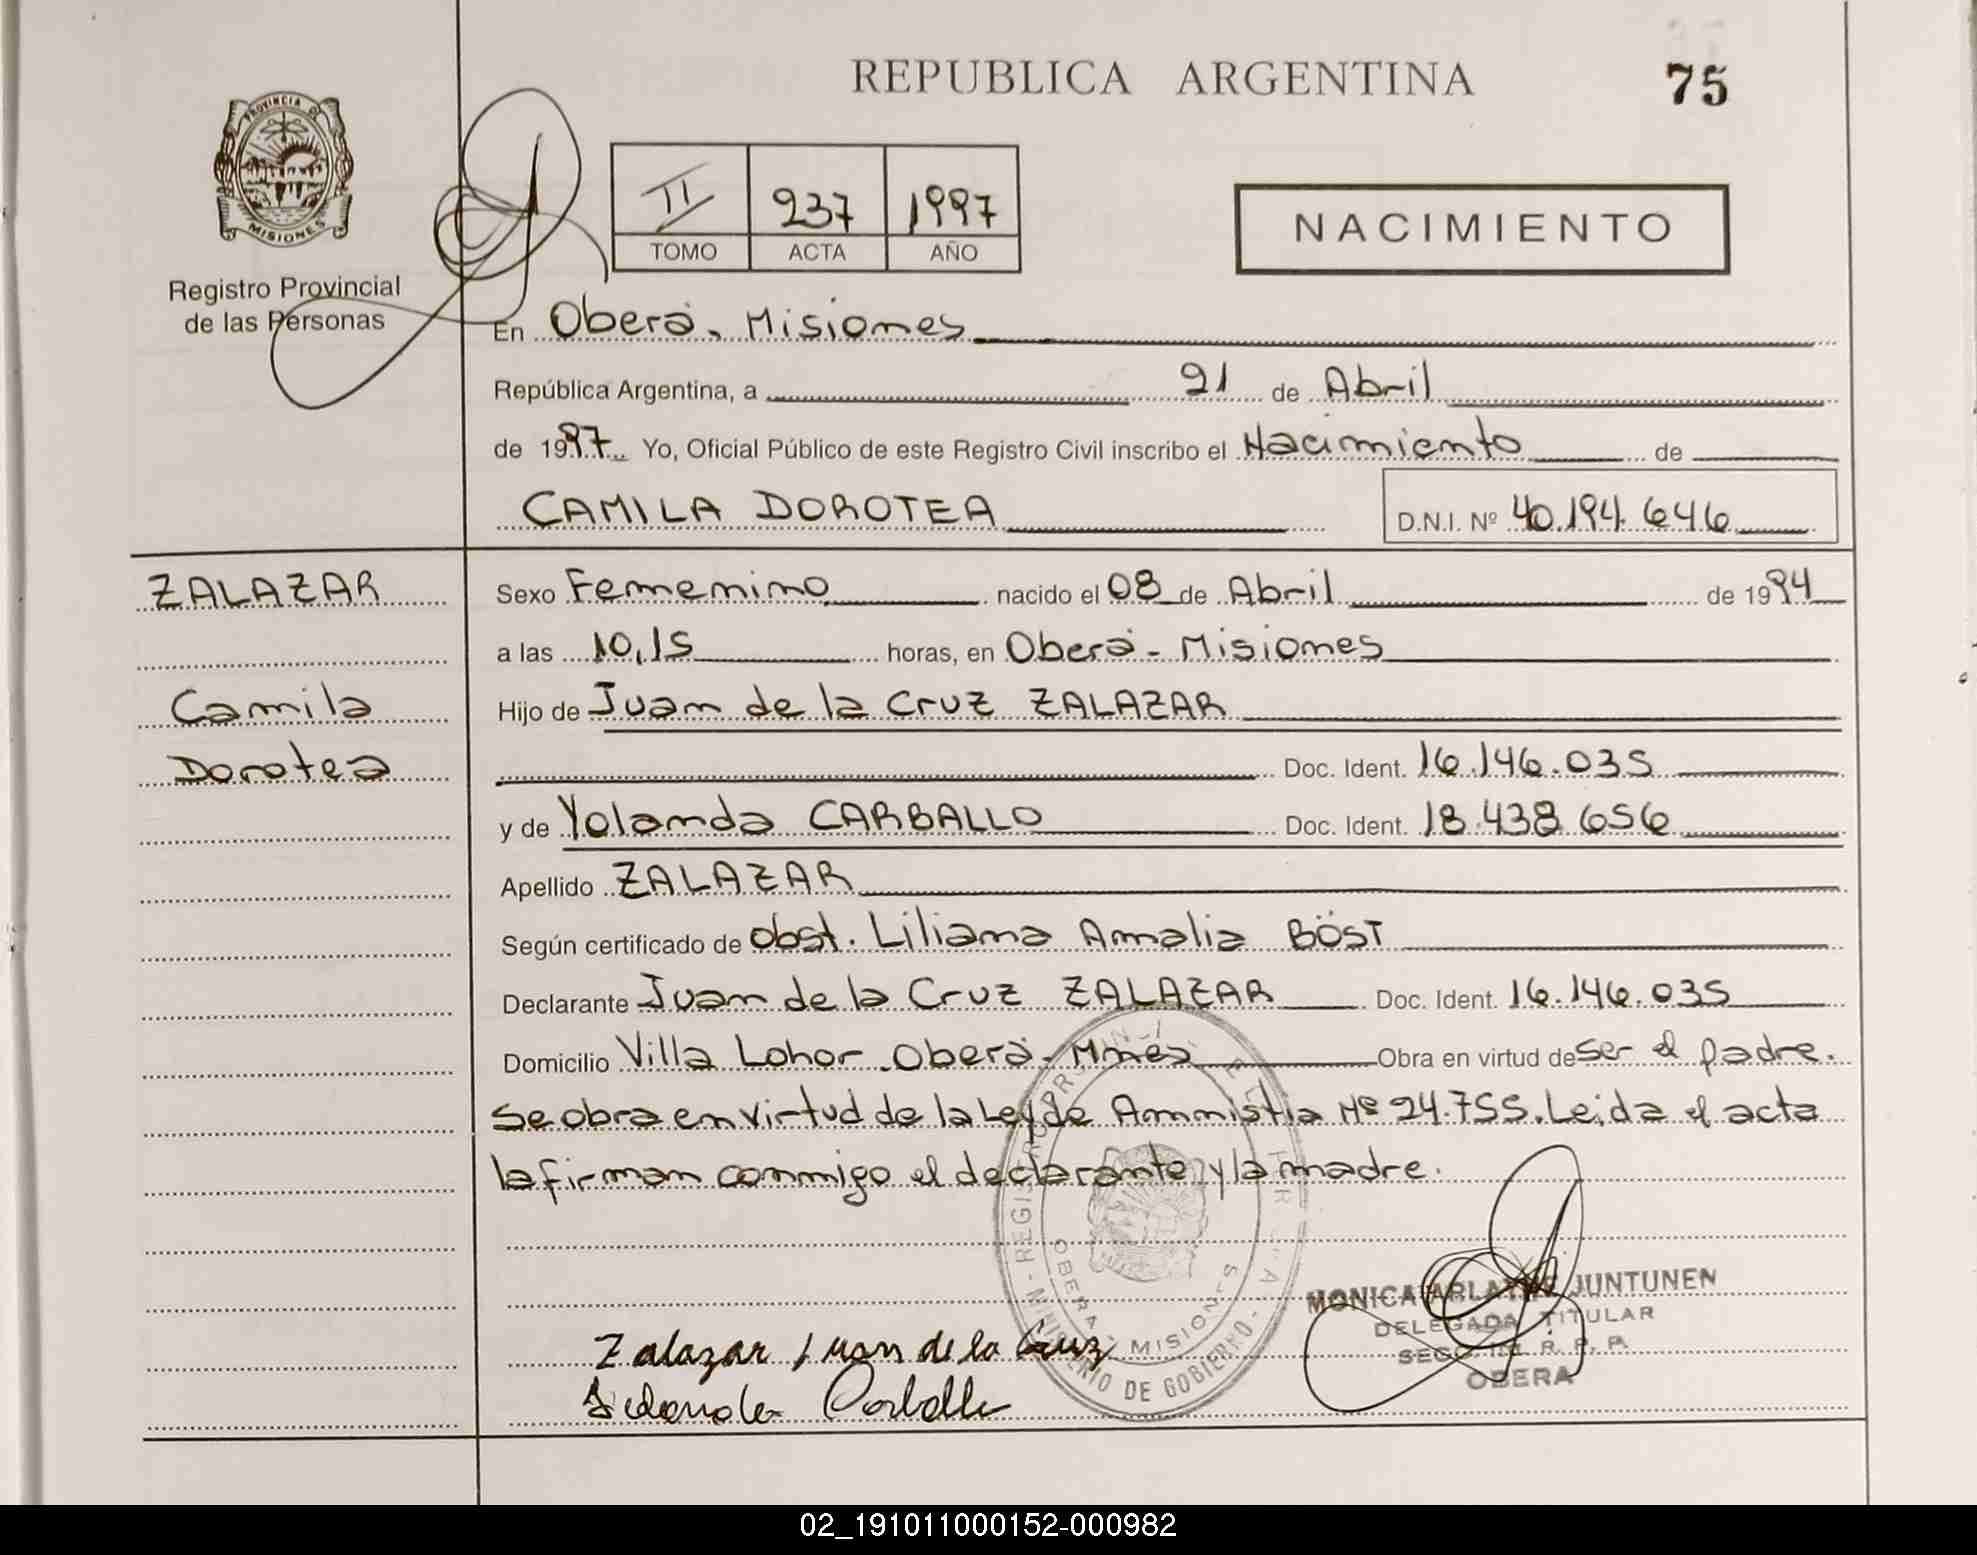 REPUBLICA ARGENTINA
75
PROVINCIA DE
MISIONES
Registro Provincial
de las Personas
II 237 1997
TOMO ACTA AÑO
NACIMIENTO
En Oberá. Misiones
República Argentina, a 21 de Abril
de 1997 Yo, Oficial Público de este Registro Civil inscribo el Nacimiento de
CAMILA DOROTEA D.N.I. Nº 40.194.646
ZALAZAR
Camila
Dorotea
Sexo Femenino nacido el 08 de Abril de 1994
a las 10,15 horas, en Oberá - Misiones
Hijo de Juan de la Cruz ZALAZAR
Doc. Ident. 16.146.035
y de Yolanda CARBALLO Doc. Ident. 18.438.656
Apellido ZALAZAR
Según certificado de obst. Liliana Amalia BÖST
Declarante Juan de la Cruz ZALAZAR Doc. Ident. 16.146.035
Domicilio Villa Lohor. Oberá. Mnes Obra en virtud de ser el padre.
Se obra en virtud de la Ley de Amnistia Nº 24.755. Leida el acta
la firman conmigo el declarante y la madre.
Zalazar Juan de la Cruz
Carballo
MONICA JUNTUNEN
DELEGADA TITULAR
OBERA
MINISTERIO DE GOBIERNO
OBERA - MISIONES
02_191011000152-000982